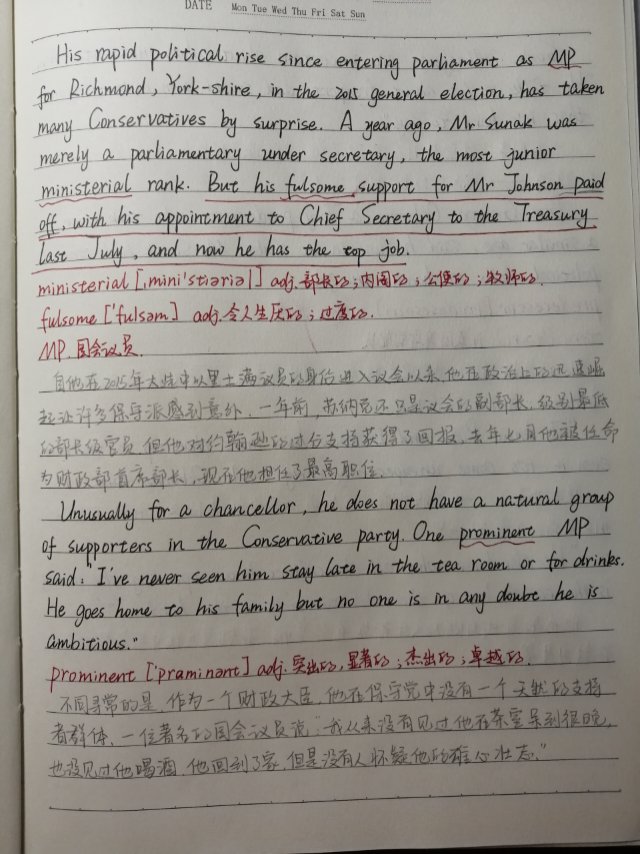 DATE Mon Tue Wed Thu Fri Sat Sun
His rapid political rise since entering parliament as MP
for Richmond, York-shire, in the 2015 general election, has taken
many Conservatives by surprise. A year ago, Mr Sunak was
merely a parliamentary under secretary, the most junior
ministerial rank. But his fulsome support for Mr Johnson paid
off, with his appointment to Chief Secretary to the Treasury
last July, and now he has the top job.
ministerial [ˌmini'stiəriəl] adj. 部长的;内阁的;公使的;牧师的.
fulsome ['fulsəm] adj. 令人生厌的;过度的.
MP. 国会议员.
自他在2015年大选中以里士满议员的身份进入议会以来,他在政治上的迅速崛
起让许多保守派感到意外.一年前,苏纳克还只是议会的副部长,级别最低
的部长级官员,但他对约翰逊的过分支持获得了回报,去年七月他被任命
为财政部首席部长,现在他担任了最高职位.
Unusually for a chancellor, he does not have a natural group
of supporters in the Conservative party. One prominent MP
said: "I've never seen him stay late in the tea room or for drinks.
He goes home to his family but no one is in any doubt he is
ambitious."
prominent ['prɑminənt] adj. 突出的,显著的;杰出的;卓越的.
不同寻常的是,作为一个财政大臣,他在保守党中没有一个天然的支持
者群体.一位著名的国会议员说:"我从来没有见过他在茶室呆到很晚,
也没见过他喝酒.他回到了家,但是没有人怀疑他的雄心壮志."